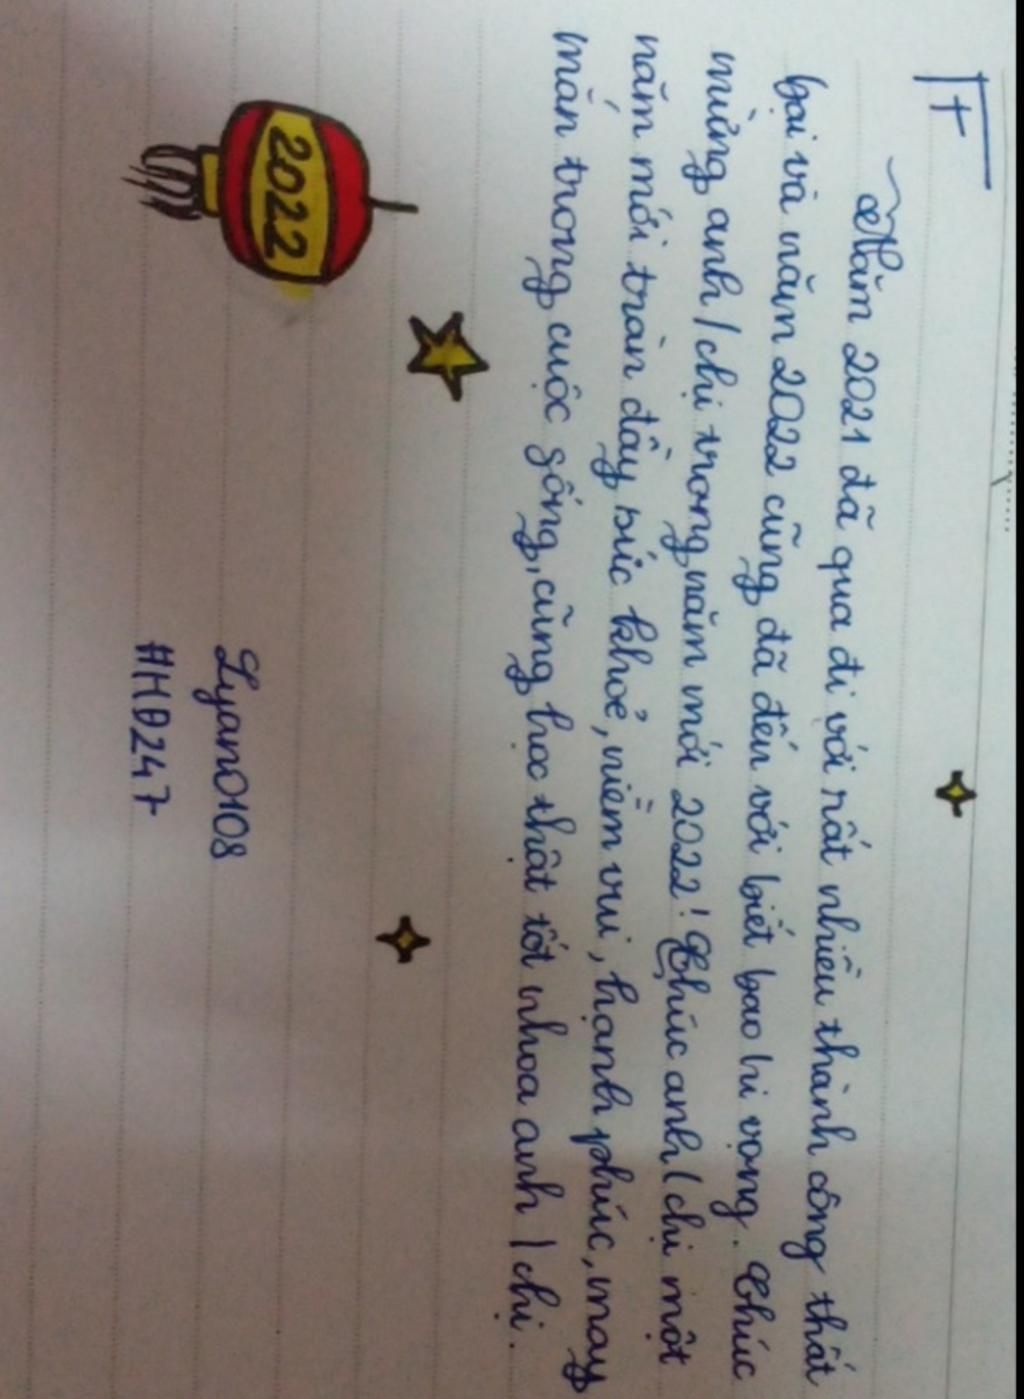 Năm 2021 đã qua đi với rất nhiều thành công thất
bại và năm 2022 cũng đã đến với biết bao hi vọng. Chúc
mừng anh/chị trong năm mới 2022! Chúc anh/chị một
năm mới tràn đầy sức khoẻ, niềm vui, hạnh phúc, may
mắn trong cuộc sống, cũng học thật tốt nhoa anh/chị.
2022
Lyan0108
#HĐ247